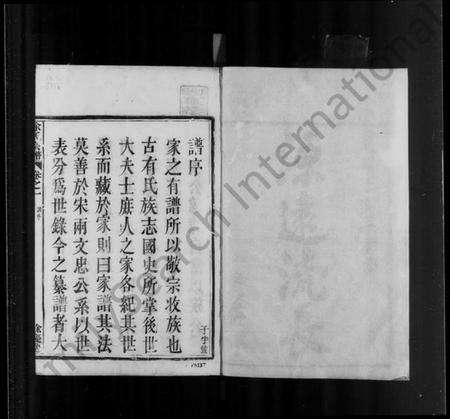 譜序
家之有譜所以敬宗收族也
古有氏族志國史所掌後世
大夫士庶人之家各紀其世
系而藏於家則曰家譜其法
莫善於宋兩文忠公系以世
表分爲世錄今之纂譜者大
卷之一
My China Research International